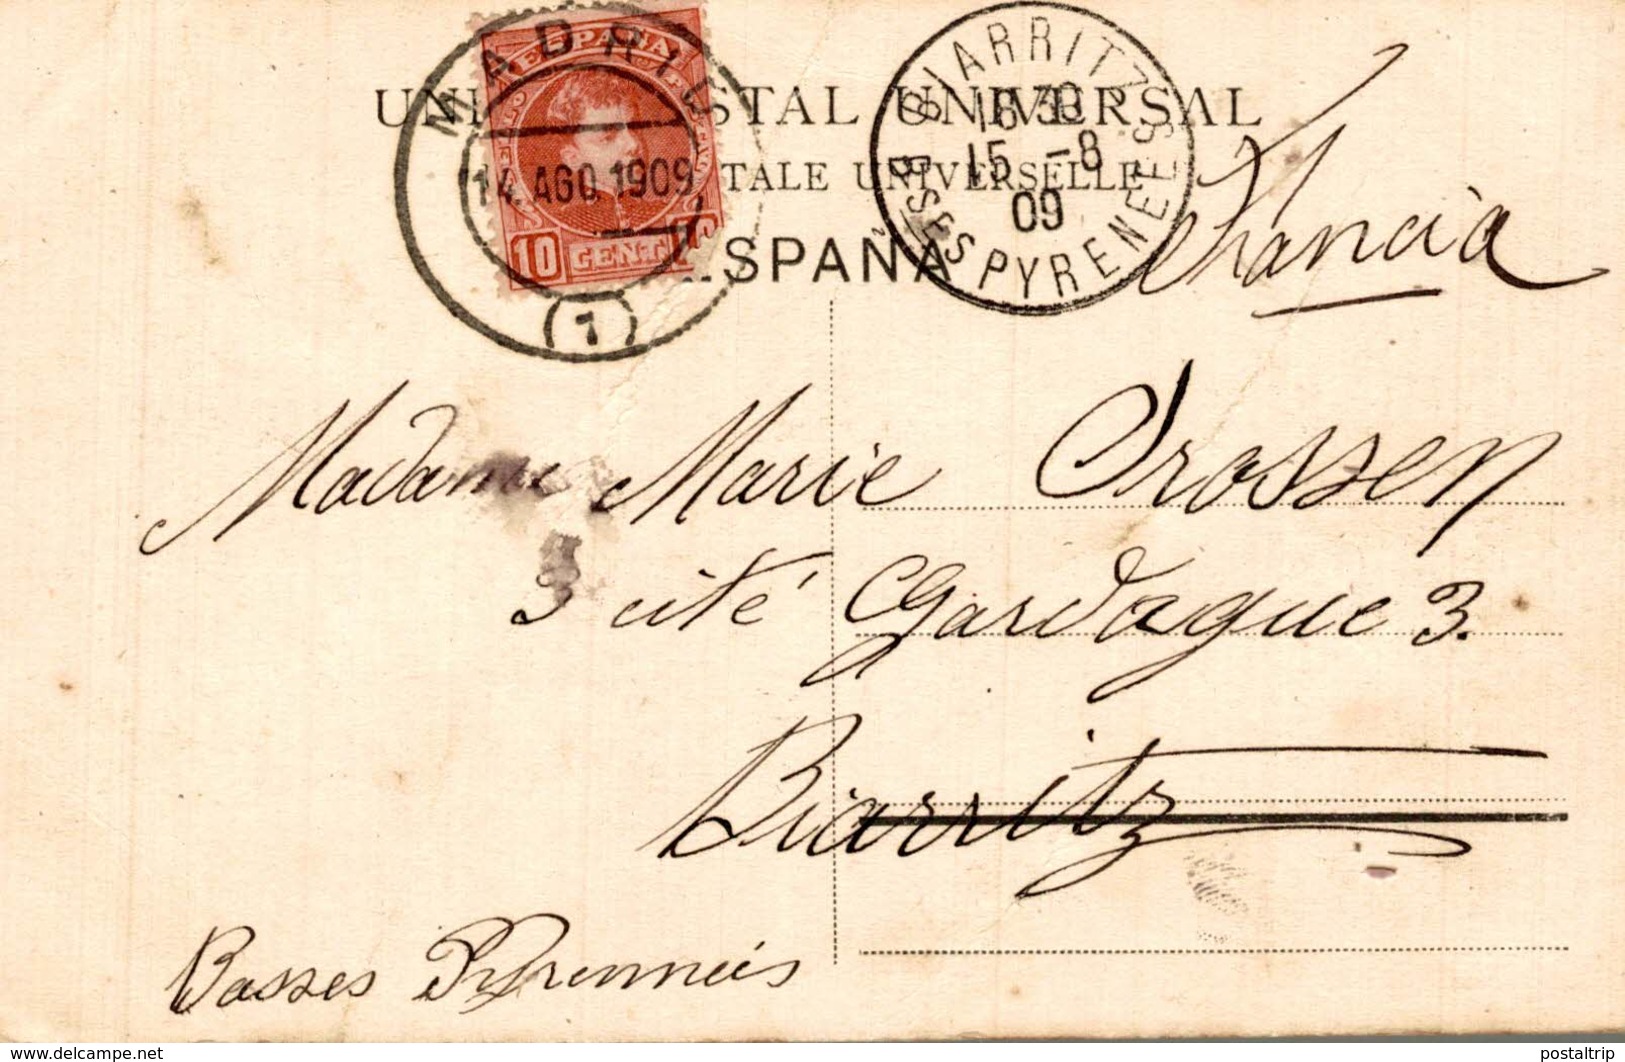 MADRID
ESPAÑA
14.AGO.1909
10 CENT
(1)
UNI STAL UNIVERSAL
TALE UNIVERSELLE
ESPAÑA
BIARRITZ
18 30
15 -8
09
BSES PYRENEES
Francia
Madame Marie Drossen
3 cité Gardague 3.
Biarritz
Basses Pyrenneés
www.delcampe.net
postaltrip